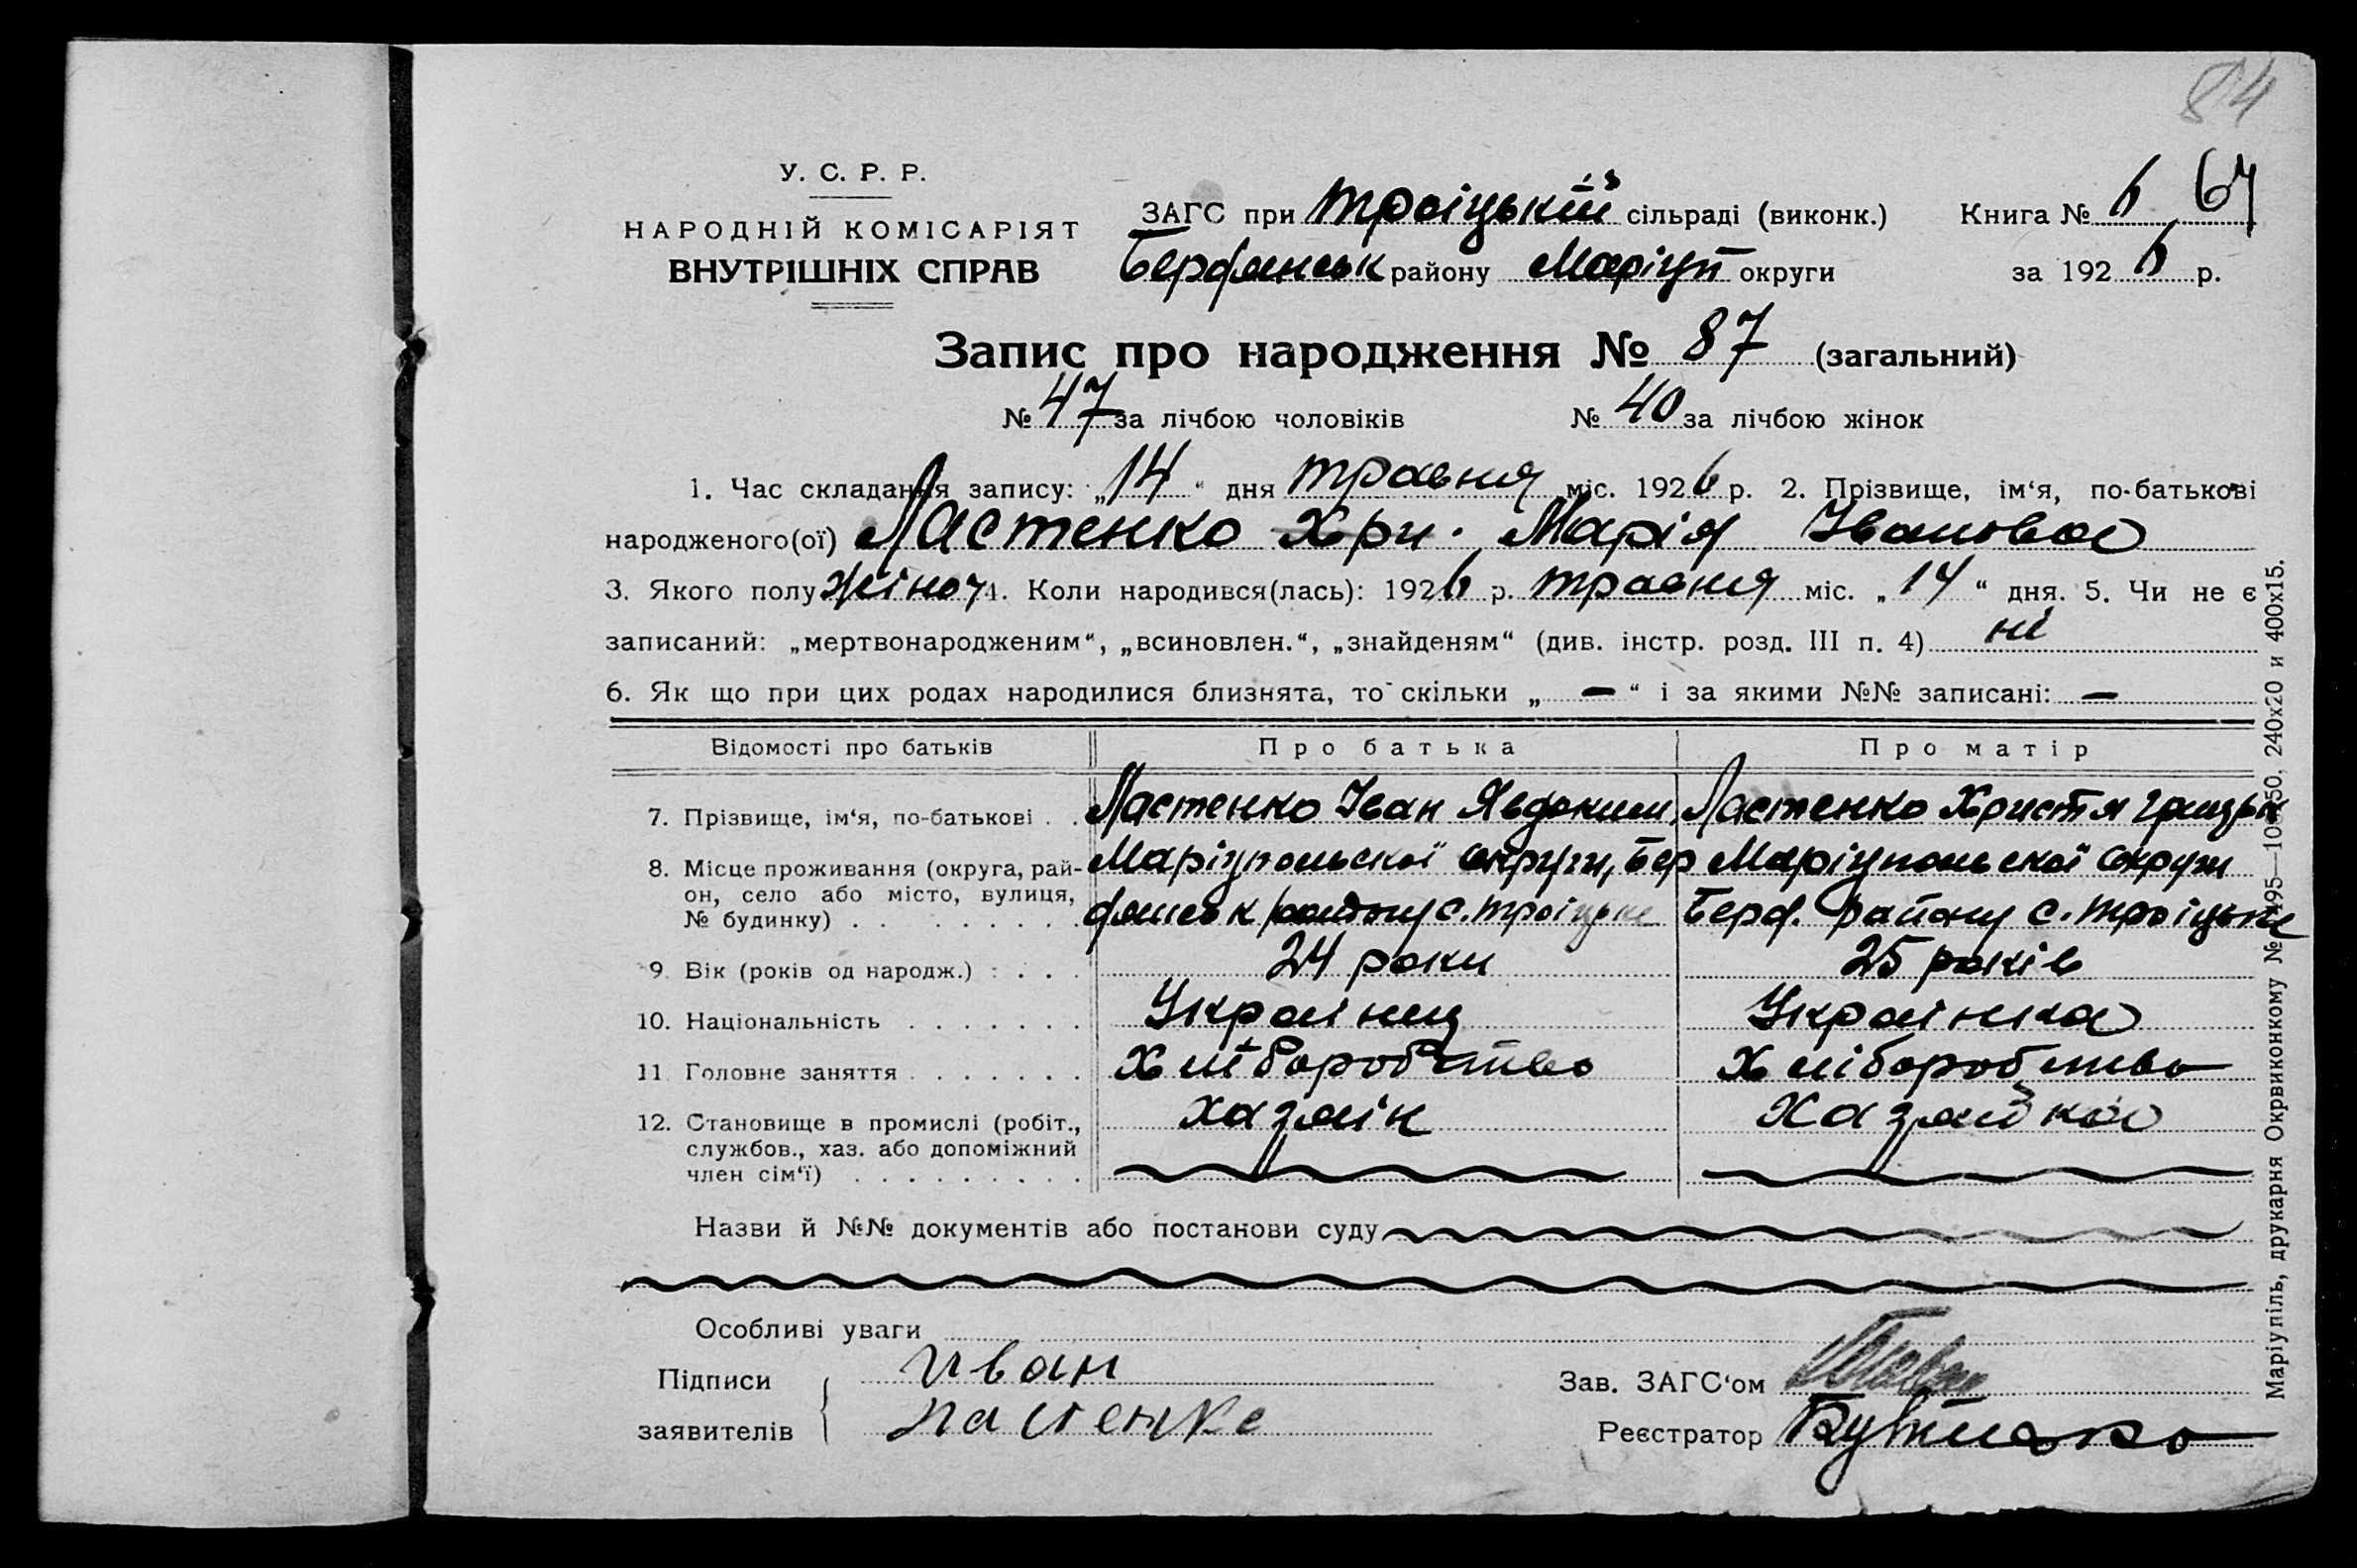 84
У. С. Р. Р.
НАРОДНІЙ КОМІСАРІЯТ
ВНУТРІШНІХ СПРАВ
ЗАГС при троіцькій сільраді (виконк.) Книга № 6 67
Бердянськ району Маріуп округи за 1926 р.
Запис про народження № 87 (загальний)
№ 47 за лічбою чоловіків № 40 за лічбою жінок
1. Час складання запису: „14“ дня травня міс. 1926 р. 2. Прізвище, ім‘я, по-батькові
народженого(ої) Ластенко Хри. Марія Івановна
3. Якого полу жіноч 4. Коли народився(лась): 1926 р. травня міс. „14“ дня. 5. Чи не є
записаний: „мертвонародженим“, „всиновлен.“, „знайденям“ (див. інстр. розд. III п. 4) ні
6. Як що при цих родах народилися близнята, то скільки „ — “ і за якими №№ записані: —
Відомості про батьків Про батька Про матір
7. Прізвище, ім‘я, по-батькові . . Ластенко Іван Явдоким. Ластенко Христя Грицьк
8. Місце проживання (округа, рай- Маріупольскої округи, Бер Маріупольскої округи
он, село або місто, вулиця,
№ будинку) . . . . . . . . дянськ району с. троіцьке Берд. району с. троіцьке
9. Вік (років од народж.) . . . 24 роки 25 років
10. Національність . . . . . . . Украінец Украінка
11. Головне заняття . . . . . . . Хліборобство Хліборобство
12. Становище в промислі (робіт., хазяїн Хазяйка
службов., хаз. або допоміжний
член сім‘ї) . . . . . . . . .
Назви й №№ документів або постанови суду
Особливі уваги
Підписи Иван
заявителів Ластенко
Зав. ЗАГС‘ом
Реєстратор
Маріупіль, друкарня Окрвиконкому № 495—10050. 240х20 и 400х15.